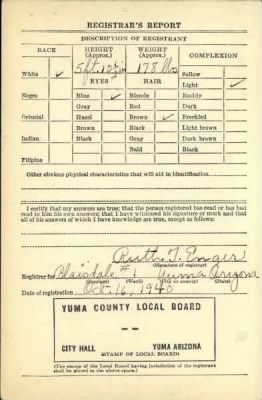 REGISTRAR'S REPORT
DESCRIPTION OF REGISTRANT
RACE HEIGHT (Approx.) WEIGHT (Approx.) COMPLEXION
White ✓ 5 ft. 10½ in 178 lbs Sallow
EYES HAIR Light ✓
Negro Blue ✓ Blonde Ruddy
Gray Red Dark
Oriental Hazel Brown ✓ Freckled
Brown Black Light brown
Indian Black Gray Dark brown
Bald Black
Filipino
Other obvious physical characteristics that will aid in identification
I certify that my answers are true; that the person registered has read or has had
read to him his own answers; that I have witnessed his signature or mark and that
all of his answers of which I have knowledge are true, except as follows:
Ruth T.
(Signature of registrar)
Registrar for Blaisdale #1 Yuma Arizona
(Precinct) (Ward) (City or county) (State)
Date of registration Oct. 16, 1940
YUMA COUNTY LOCAL BOARD
CITY HALL YUMA ARIZONA
(STAMP OF LOCAL BOARD)
(The stamp of the Local Board having jurisdiction of the registrant
shall be placed in the above space.)